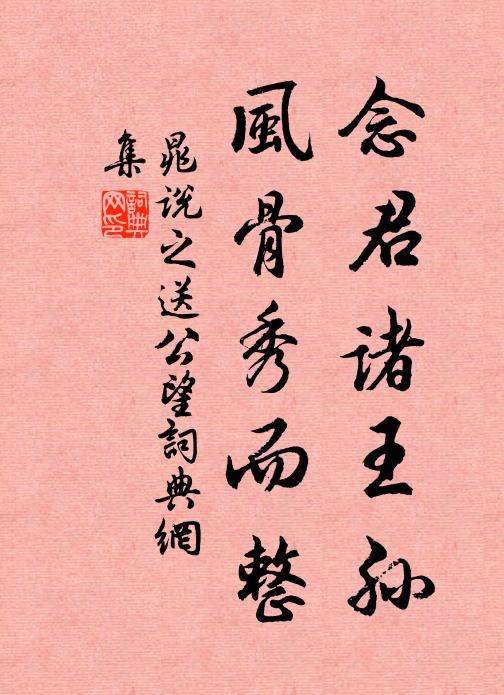 念君諸王孫
風骨秀而整
晁説之送公望詞典網
集
詞典
网印